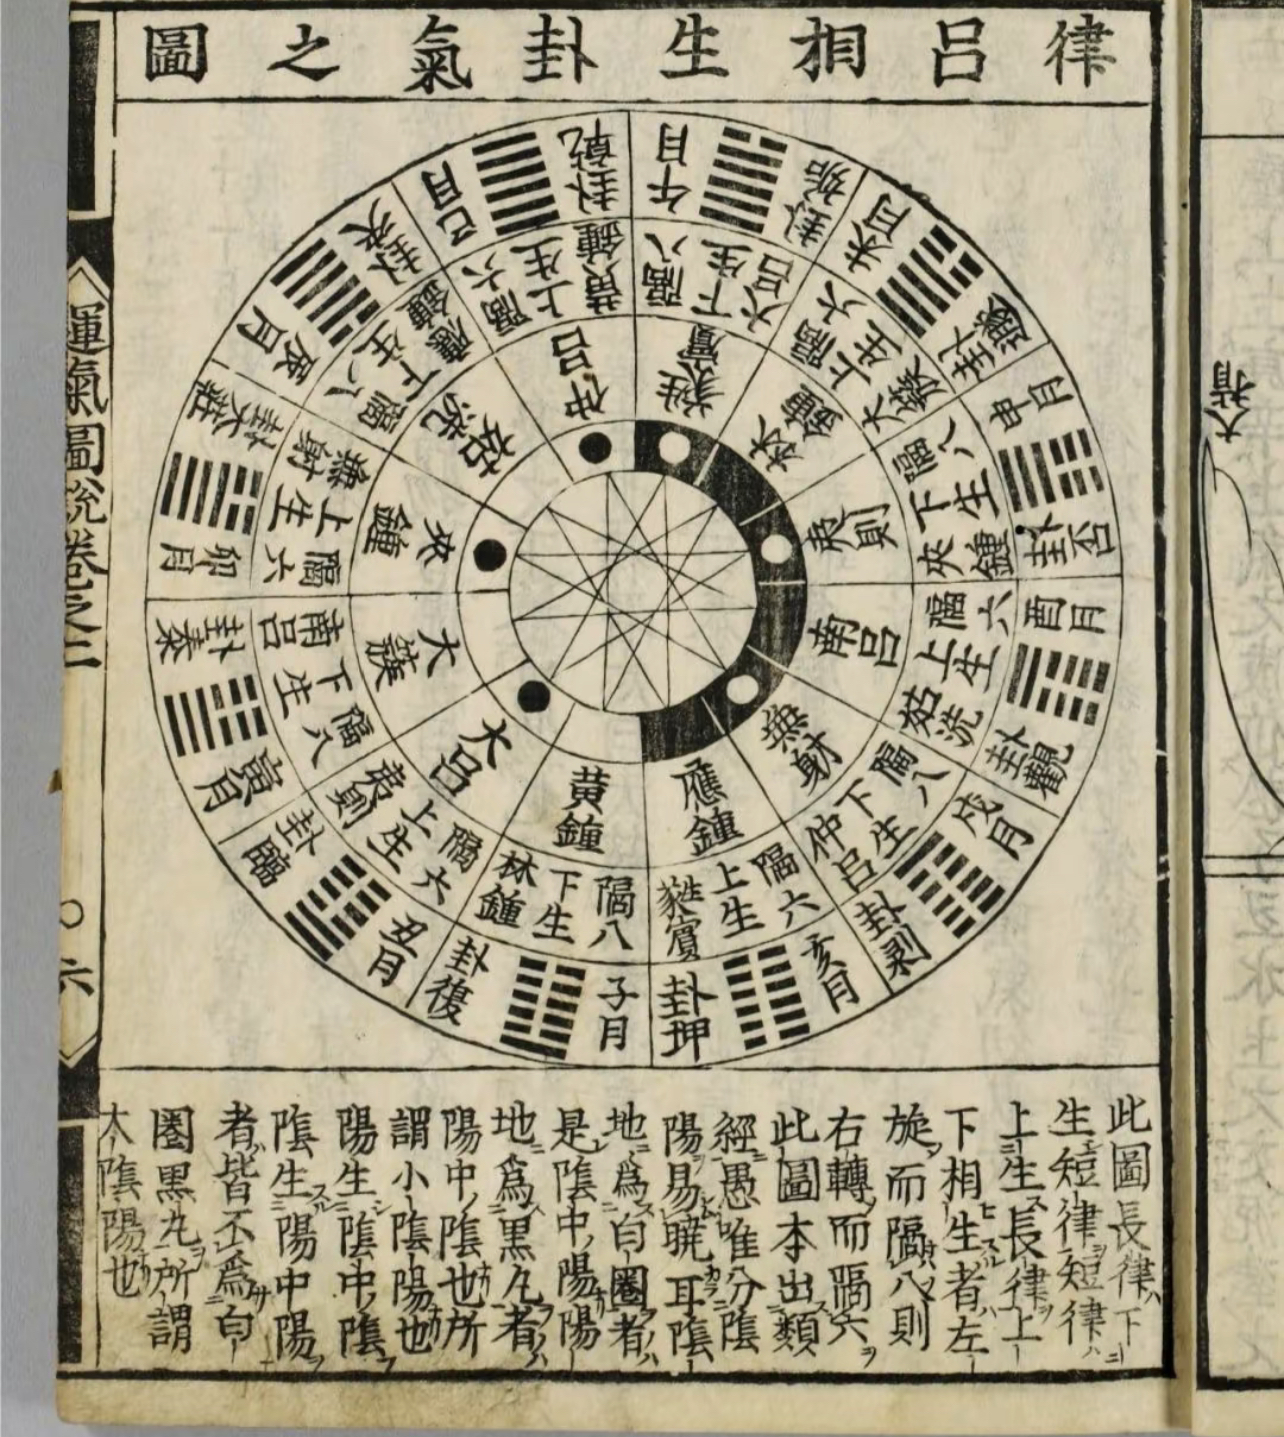 律呂相生卦氣之圖
子月
卦復
黃鐘
隔八
下生
林鐘
丑月
卦臨
大呂
隔六
上生
夷則
寅月
卦泰
大簇
隔八
下生
南呂
卯月
卦大壯
夾鐘
隔六
上生
無射
辰月
卦夬
姑洗
隔八
下生
應鐘
巳月
乾卦
仲呂
隔六
上生
黃鐘
午月
卦姤
蕤賓
隔八
下生
大呂
未月
卦遯
林鐘
隔六
上生
大簇
申月
卦否
夷則
隔八
下生
夾鐘
酉月
卦觀
南呂
隔六
上生
姑洗
戌月
卦剥
無射
隔八
下生
仲呂
亥月
卦坤
應鐘
隔六
上生
蕤賓
此圖長律ハ下ニ
生短律ヲ短律ハ
上ニ生ス長律ヲ上
下相生スル者ハ左
旋而隔八則
右轉而隔六
此圖本出類
經愚唯分陰
陽易曉耳陰
地為白圏者ハ
是陰中ノ陽陽
地為黒丸者ハ
陽中ノ陰也所
謂小陰陽也
陽生陰中ノ陰
陰生陽中陽
者皆不為白
圏黒丸所謂
大陰陽也
運氣圖説卷之二
〇六
大指